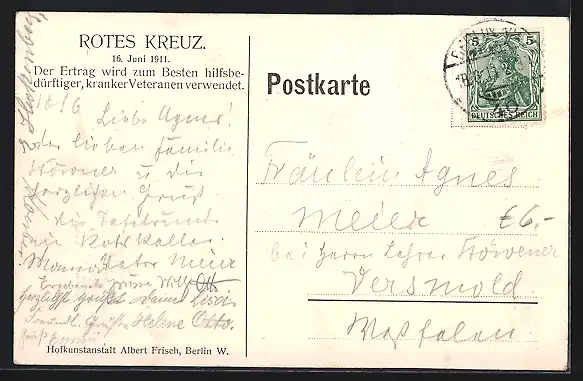 ROTES KREUZ.
16. Juni 1911.
Der Ertrag wird zum Besten hilfsbe-
dürftiger, kranker Veteranen verwendet.
10/6
Liebe Agnes!
der lieben Familie
Stöwener u. die
herzlichen Gruß
die Tafelrunde
im Ratskeller
Mama Vater Meier
Willy Otto
herzlich grüßt Deine Lisa
Freundl. Grüße Helene Otto.
Gruß Emmi
Hofkunstanstalt Albert Frisch, Berlin W.
Postkarte
5 5
DEUTSCHES REICH
BERLIN
Fräulein Agnes
Meier
€6,-
bei Herrn Lehrer Stöwener
Versmold
Westfalen